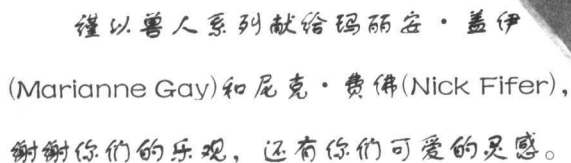 谨以兽人系列献给玛丽安·盖伊
(Marianne Gay)和尼克·费佛(Nick Fifer)，
谢谢你们的乐观，还有你们可爱的灵感。